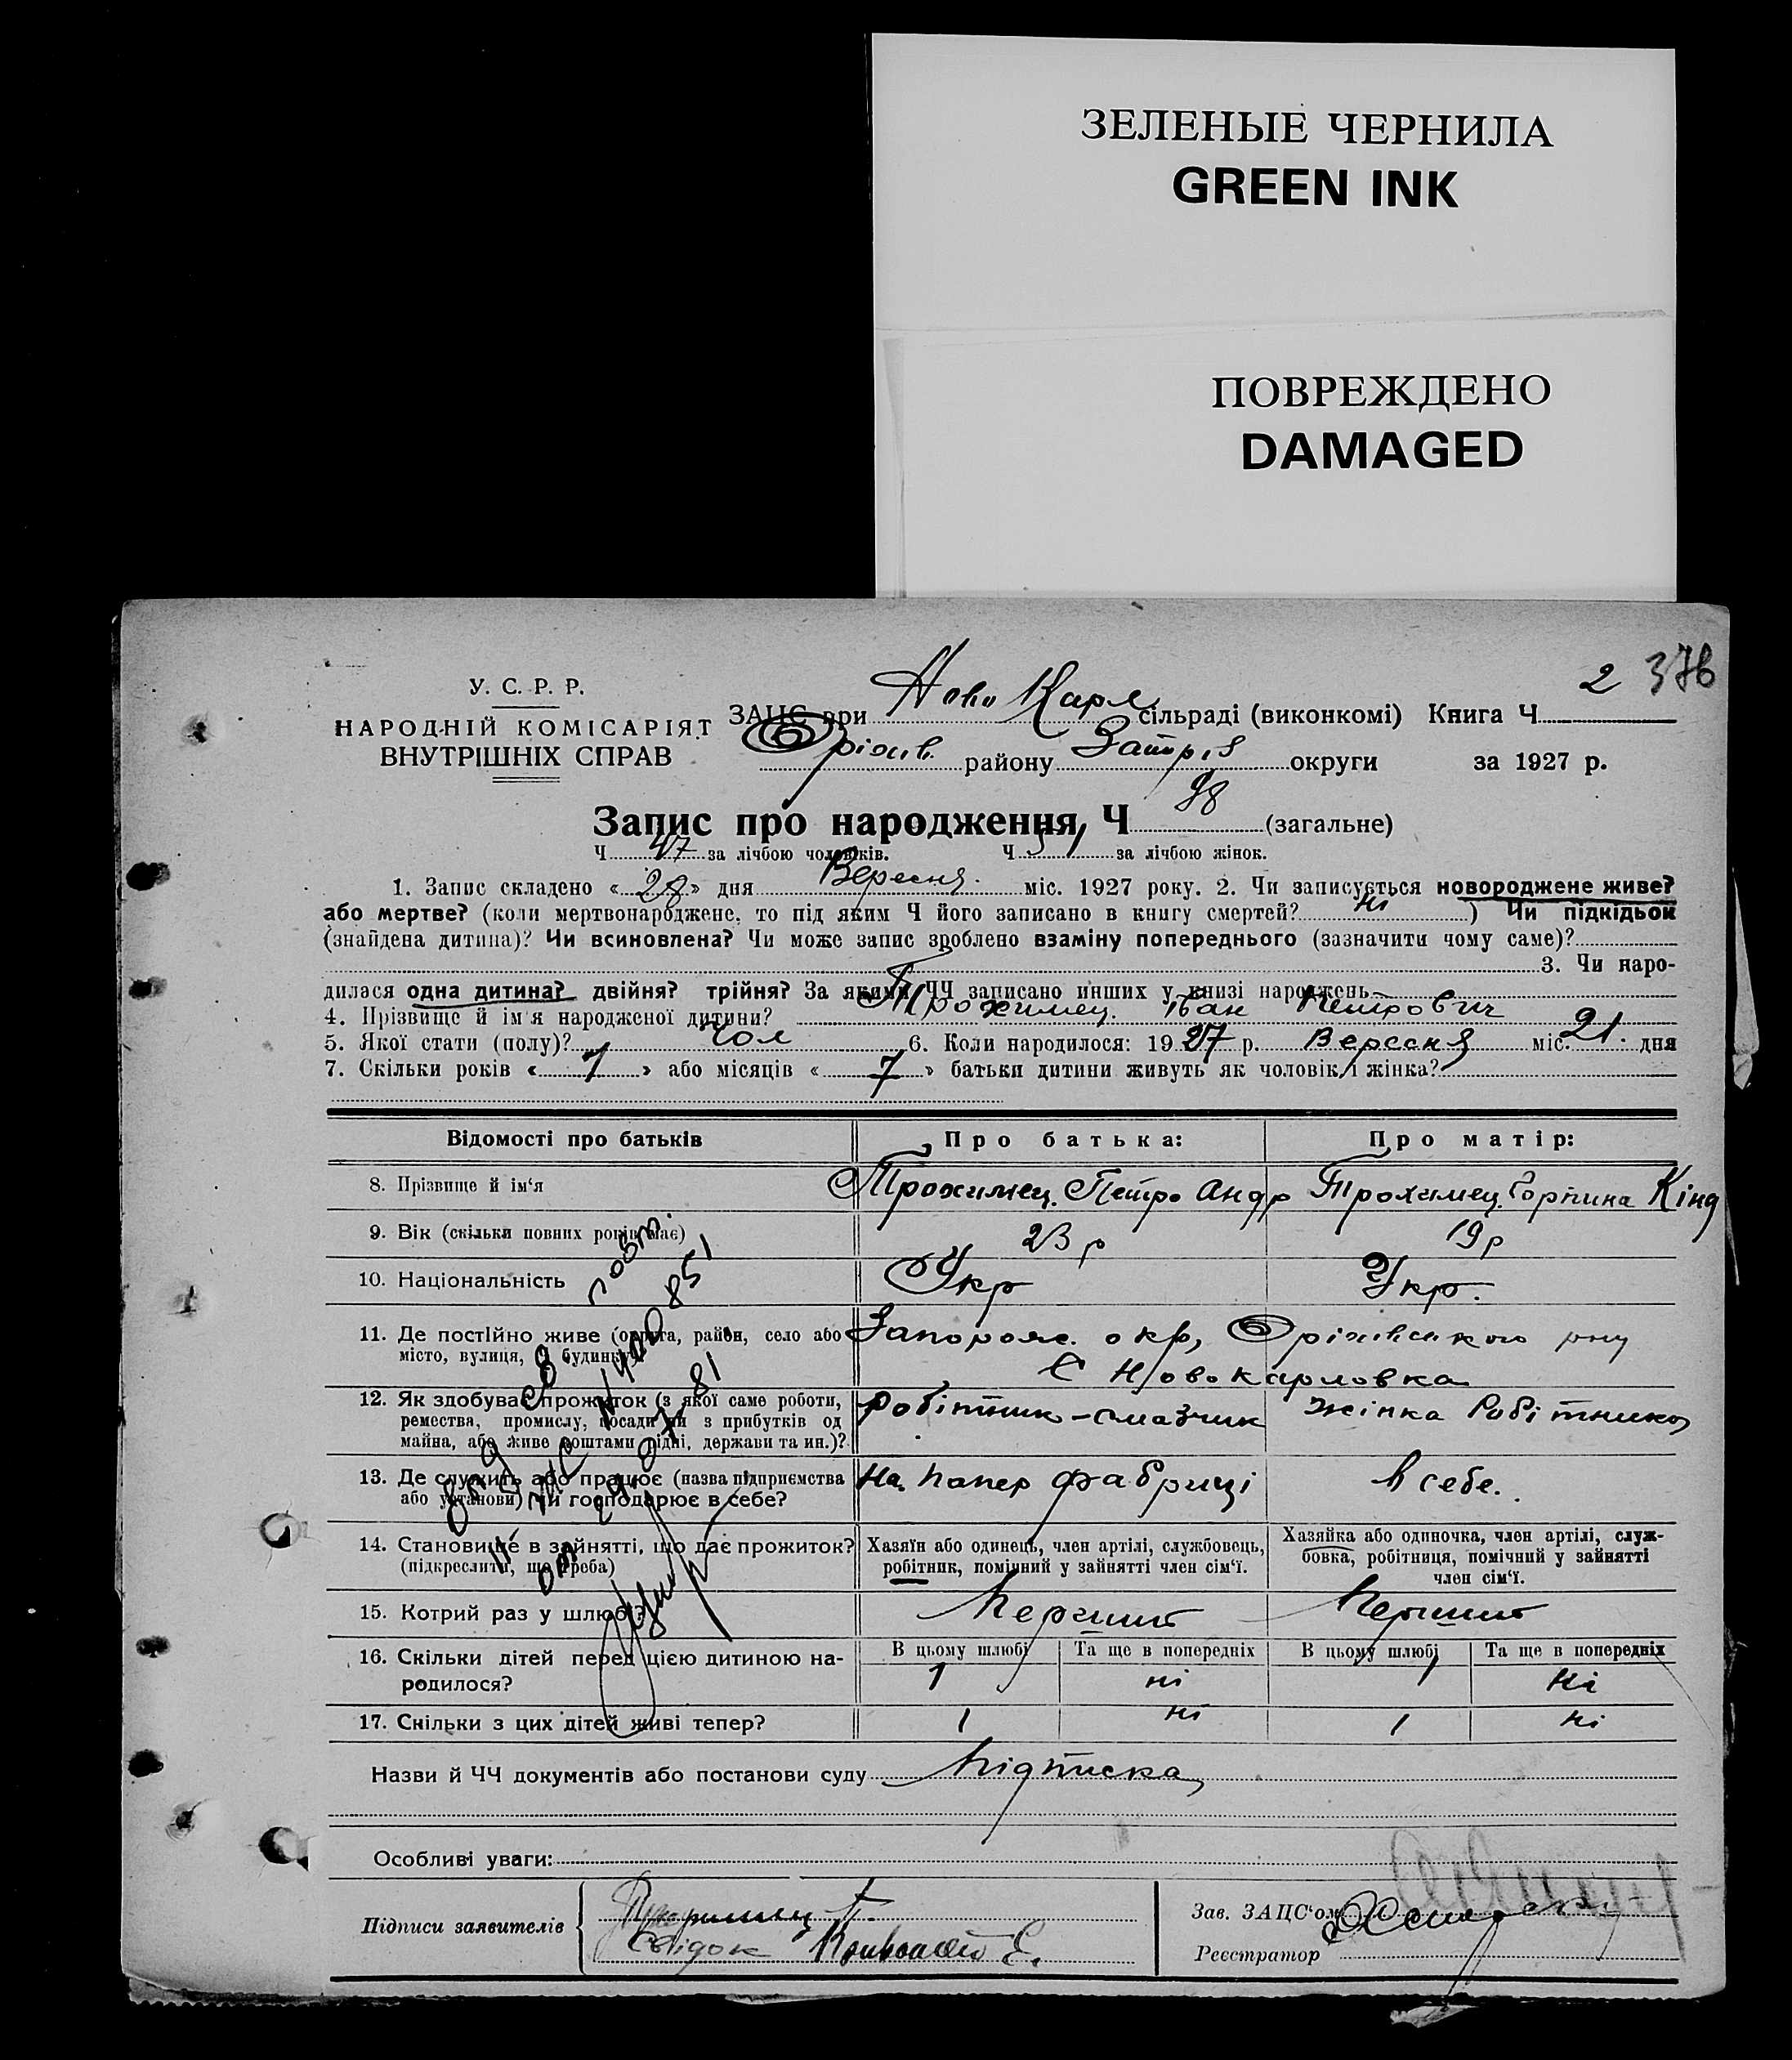 ЗЕЛЕНЫЕ ЧЕРНИЛА
GREEN INK
ПОВРЕЖДЕНО
DAMAGED
2 376
У. С. Р. Р.
НАРОДНІЙ КОМІСАРІЯТ
ВНУТРІШНІХ СПРАВ
ЗАЦС при Ново Карл сільраді (виконкомі) Книга Ч
Оріхів. району Запоріз округи за 1927 р.
Запис про народження, Ч 98 (загальне)
Ч 47 за лічбою чоловіків. Ч 51 за лічбою жінок.
1. Запис складено «28» дня Вересня. міс. 1927 року. 2. Чи записується новороджене живе?
або мертве? (коли мертвонароджене, то під яким Ч його записано в книгу смертей? ні ) Чи підкідьок
(знайдена дитина)? Чи всиновлена? Чи може запис зроблено взаміну попереднього (зазначити чому саме)?
3. Чи наро-
дилася одна дитина? двійня? трійня? За якими ЧЧ записано инших у книзі народжень
4. Прізвище й ім'я народженої дитини? Трохимец. Іван Петрович
5. Якої стати (полу)? Чол 6. Коли народилося: 1927 р. Вересня міс. 21. дня
7. Скільки років «1» або місяців «7» батьки дитини живуть як чоловік і жінка?
Відомості про батьків Про батька: Про матір:
8. Прізвище й ім'я Трохимец. Петро Андр Трохимец. Горпина Кінд
9. Вік (скільки повних років має) 23 р 19 р
10. Національність Укр Укр.
11. Де постійно живе (округа, район, село або місто, вулиця, Ч будинку)? Запорож. окр, Оріхівського рну
С Новокарловка
12. Як здобуває прожиток (з якої саме роботи, ремества, промислу, посади чи з прибутків од майна, або живе коштами рідні, держави та ин.)? робітник - смазчик Жінка Робітника
13. Де служить або працює (назва підприємства або установи) чи господарює в себе? На папер фабриці В себе.
14. Становище в зайнятті, що дає прожиток? (підкреслити, що треба) Хазяїн або одинець, член артілі, службовець, робітник, помічний у зайнятті член сім'ї. Хазяйка або одиночка, член артілі, служ-бовка, робітниця, помічний у зайнятті член сім'ї.
15. Котрий раз у шлюбі? Перший Перший
В цьому шлюбі Та ще в попередніх В цьому шлюбі Та ще в попередніх
16. Скільки дітей перед цією дитиною на-родилося? 1 ні 1 ні
17. Скільки з цих дітей живі тепер? 1 ні 1 ні
Назви й ЧЧ документів або постанови суду Підписка
Особливі уваги:
Підписи заявителів Трохимец П.
Свідок
Зав. ЗАЦС'ом
Реєстратор